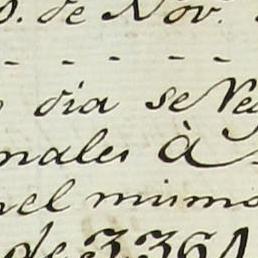 de Nov.
dia se
nales à
nel mismo
de 3.364